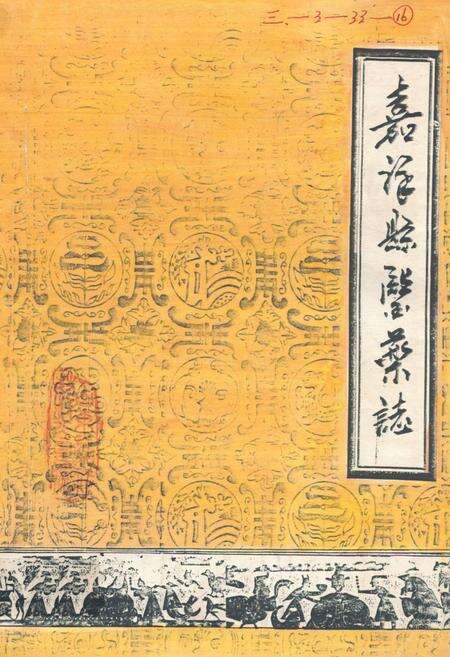 三-3-33-16
嘉祥縣醫藥誌